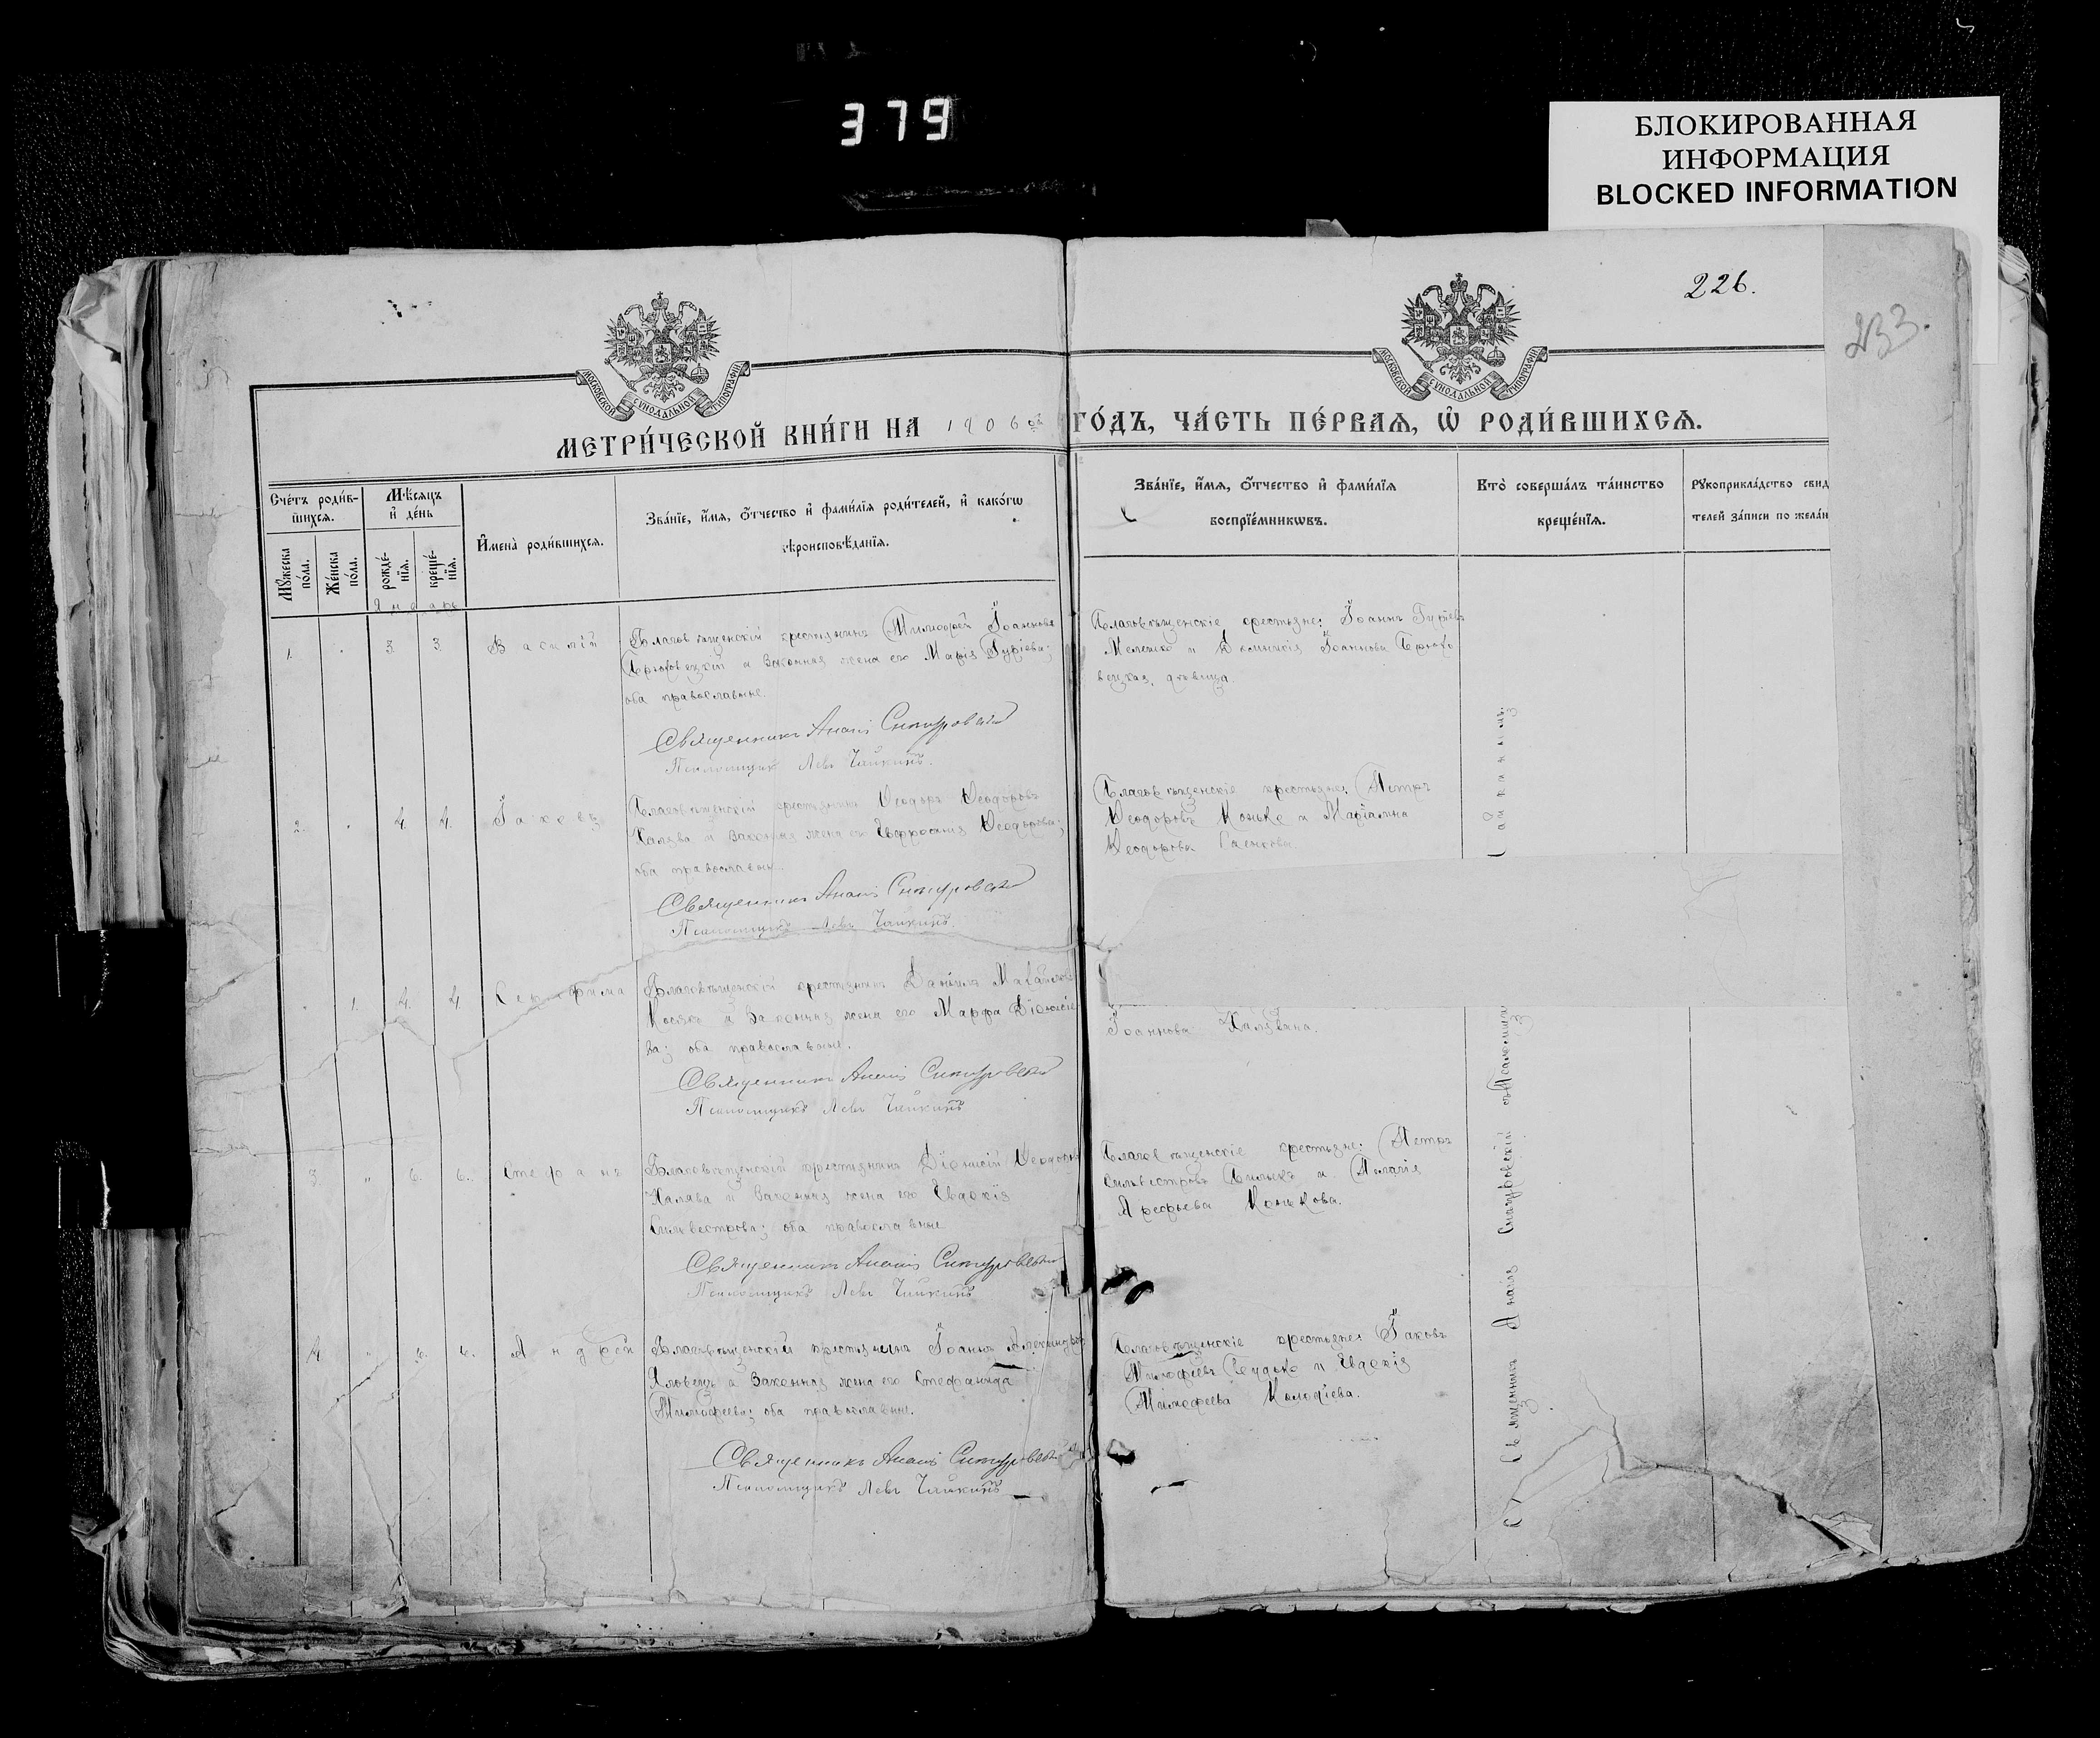 379
БЛОКИРОВАННАЯ
ИНФОРМАЦИЯ
BLOCKED INFORMATION
226.
233.
МОСКОВСКОЙ СУНОДАЛЬНОЙ ТИПОГРАФІИ
МОСКОВСКОЙ СУНОДАЛЬНОЙ ТИПОГРАФІИ
МЕТРИ́ЧЕСКОЙ КНИ́ГИ НА 1906 ГО́ДЪ, ЧА́СТЬ ПЕ́РВАѦ, Ѡ҆ РОДИ́ВШИХСѦ.
Сче́тъ роди́в-
шихсѧ.
Мꙋ́жеска
по́ла.
Же́нска
по́ла.
Мѣ́сѧцъ
и҆ де́нь
рожде́-
нїѧ.
креще́-
нїѧ.
И҆мена̀ роди́вшихсѧ.
Зва́нїе, и҆́мѧ, ѻ҆́тчество и҆ фами́лїѧ роди́телей, и҆ како́гѡ
вѣроисповѣ́данїѧ.
Зва́нїе, и҆́мѧ, ѻ҆́тчество и҆ фами́лїѧ
воспрїе́мникѡвъ.
Кто̀ соверша́лъ та́инство
креще́нїѧ.
Рꙋкоприкла́дство свид
телей за́писи по жела́н
Январь
1. 3. 3. Василій
Благовѣщенскій крестьянинъ Тимофей Іоанновъ
Брюховецкій и законная жена его Марія Гуріева;
оба православные.
Священникъ Ананія Снигуровскій
Псаломщикъ Левъ Чайкинъ.
Благовѣщенскіе крестьяне: Іоаннъ Гуріевъ
Мелешко и Домникія Іоаннова Брюхо
вецкая, дѣвица.
2. 4. 4. Іаковъ
Благовѣщенскій крестьянинъ Ѳеодоръ Ѳеодоровъ
Халява и законная жена его Евфросинія Ѳеодорова;
оба православные.
Священникъ Ананія Снигуровскій
Псаломщикъ Левъ Чайкинъ.
Благовѣщенскіе крестьяне: Петръ
Ѳеодоровъ Конько и Маріамна
Ѳеодорова
1. 4. 4. Серафима
Благовѣщенскій крестьянинъ Даніилъ Михайловъ
Косякъ и законная жена его Марфа Діонисіе
ва; оба православные.
Священникъ Ананія Снигуровскій
Псаломщикъ Левъ Чайкинъ
Іоаннова Халявина.
3. " 6. 6. Стефанъ
Благовѣщенскій крестьянинъ Діонисій Ѳеодоровъ
Халява и законная жена его Евдокія
Сильвестрова; оба православные
Священникъ Ананія Снигуровскій
Псаломщикъ Левъ Чайкинъ
Благовѣщенскіе крестьяне: Петръ
Сильвестровъ Билыкъ и Пелагія
Арефьева Конькова.
4 " 6. Андрей
Благовѣщенскій крестьянинъ Іоаннъ Александровъ
Яловецъ и законная жена его Стефанида
Тимофеева; оба православные.
Священникъ Ананія Снигуровскій
Псаломщикъ Левъ Чайкинъ
Благовѣщенскіе крестьяне: Іаковъ
Тимофеевъ и Евдокія
Тимофеева Колодіева.
Священникъ Ананія Снигуровскій съ Псаломщи
Чайкинымъ.